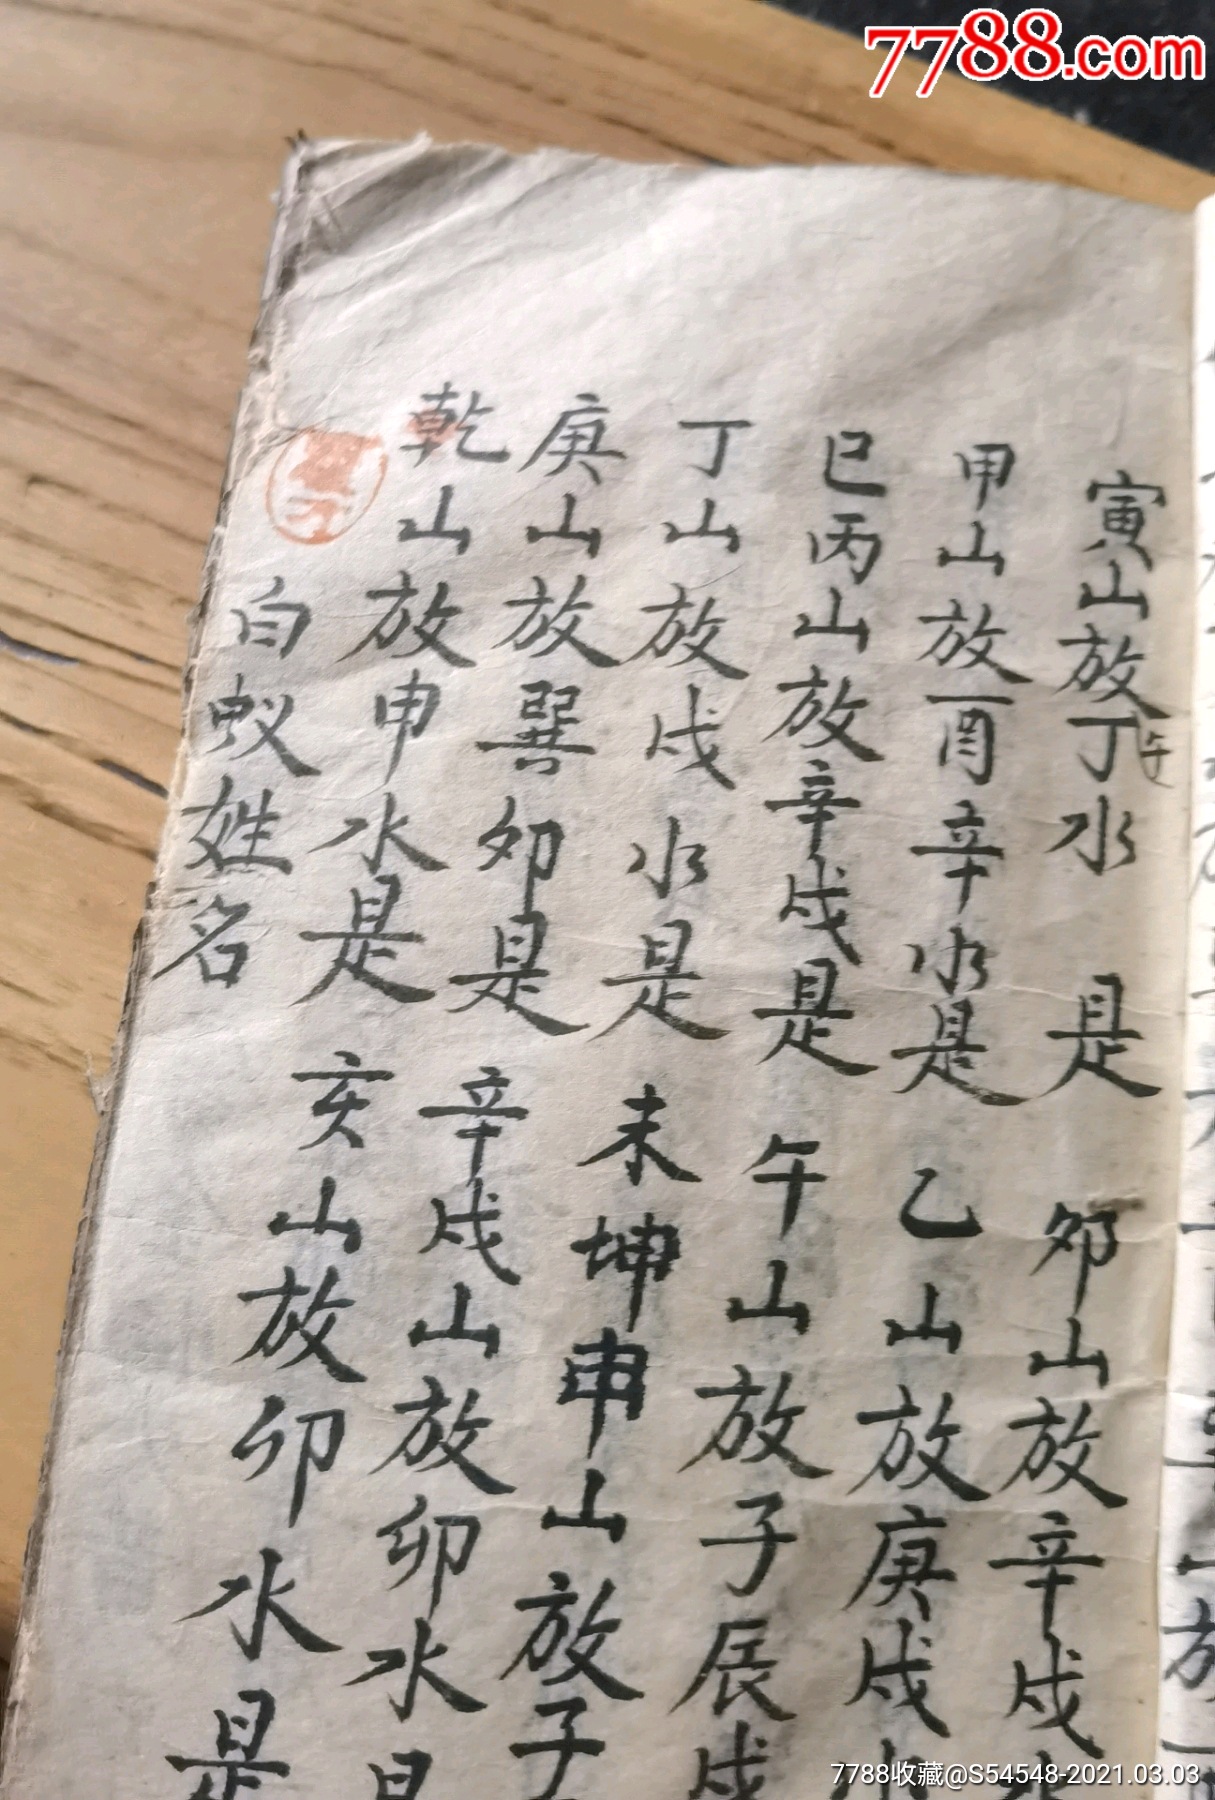 7788.com
寅山放丁午水是 卯山放辛戌水
甲山放酉辛水是 乙山放庚戌水
巳丙山放辛戌是 午山放子辰戌
丁山放戌水是 未坤申山放子
庚山放巽卯是 辛戌山放卯水是
乾山放申水是 亥山放卯水是
白蚁姓名
7788收藏@S54548-2021.03.03